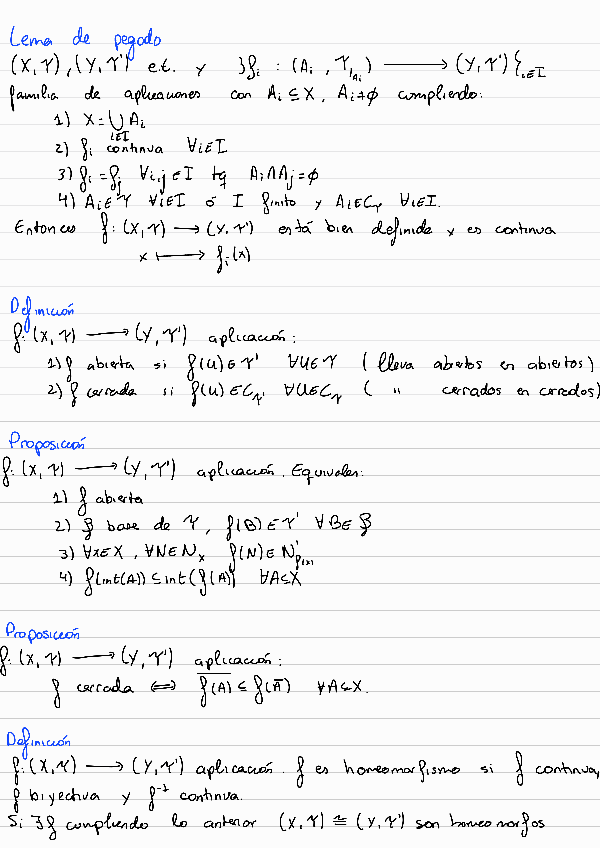 Lema de pegado
(X, τ), (Y, τ') e.t. y {f_i : (A_i, τ_{A_i}) ⟶ (Y, τ')}_{i∈I}
familia de aplicaciones con A_i ⊆ X, A_i ≠ ∅ cumpliendo:
1) X = ⋃_{i∈I} A_i
2) f_i continua ∀i∈I
3) f_i = f_j ∀i,j ∈ I tq A_i ∩ A_j = ∅
4) A_i ∈ τ ∀i∈I ó I finito y A_i ∈ C_τ ∀i∈I.
Entonces f: (X, τ) ⟶ (Y, τ') está bien definida y es continua
x ⟼ f_i(x)
Definición
f: (X, τ) ⟶ (Y, τ') aplicación:
1) f abierta si f(U) ∈ τ' ∀U∈τ (lleva abiertos en abiertos)
2) f cerrada si f(U) ∈ C_τ' ∀U∈C_τ ( " cerrados en cerrados)
Proposición
f: (X, τ) ⟶ (Y, τ') aplicación. Equivalen:
1) f abierta
2) β base de τ, f(B) ∈ τ' ∀B∈β
3) ∀x∈X, ∀N∈N_x f(N) ∈ N'_{f(x)}
4) f(int(A)) ⊆ int(f(A)) ∀A⊆X
Proposición
f: (X, τ) ⟶ (Y, τ') aplicación:
f cerrada ⟺ \overline{f(A)} ⊆ f(\overline{A}) ∀A⊆X.
Definición
f: (X, τ) ⟶ (Y, τ') aplicación. f es homeomorfismo si f continua,
f biyectiva y f⁻¹ continua.
Si ∃f cumpliendo lo anterior (X, τ) ≅ (Y, τ') son homeomorfos